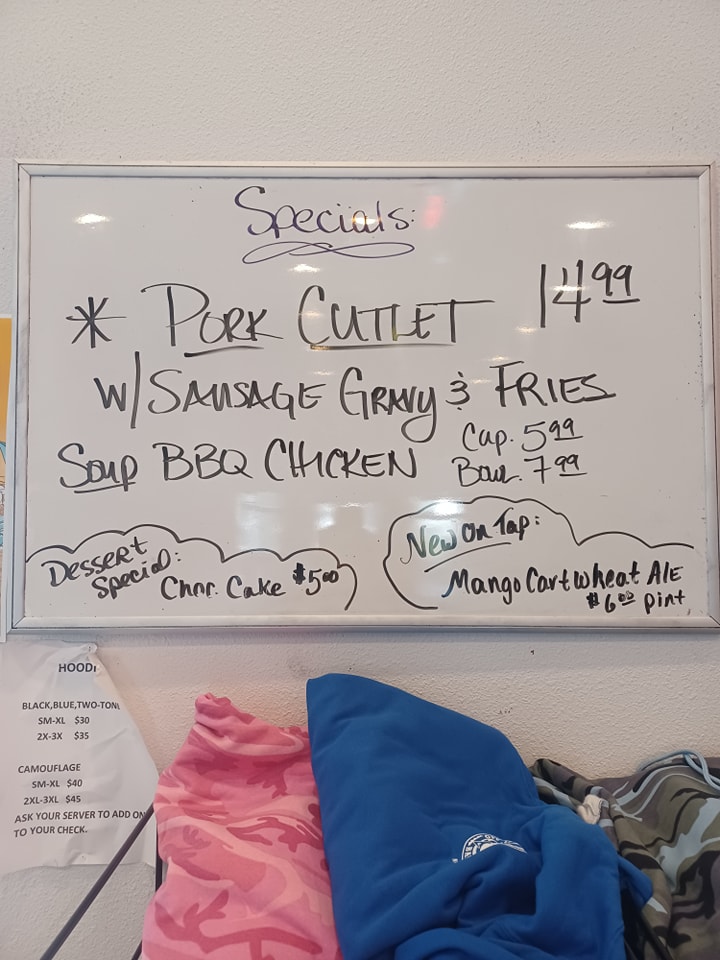 Specials:
* PORK CUTLET 14.99
W/ SAUSAGE GRAVY & FRIES
Soup BBQ CHICKEN Cup. 5.99
Bowl. 7.99
Dessert
Special:
Choc. Cake $5.00
New On Tap:
Mango Cart wheat Ale
$6.00 pint
HOODI
BLACK,BLUE,TWO-TON
SM-XL $30
2X-3X $35
CAMOUFLAGE
SM-XL $40
2XL-3XL $45
ASK YOUR SERVER TO ADD ON
TO YOUR CHECK.